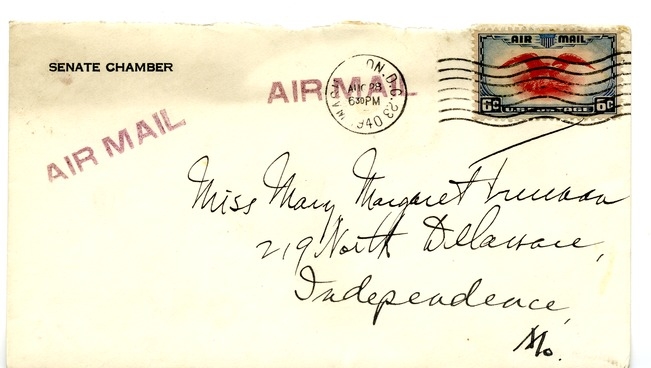 SENATE CHAMBER
AIR MAIL
AIR MAIL
WASH ON, D.C. 23
AUG 28
6 30 PM
1940
AIR MAIL
6¢ 6¢
U.S. POSTAGE
Miss Mary Margaret Truman
219 North Delaware,
Independence,
Mo.